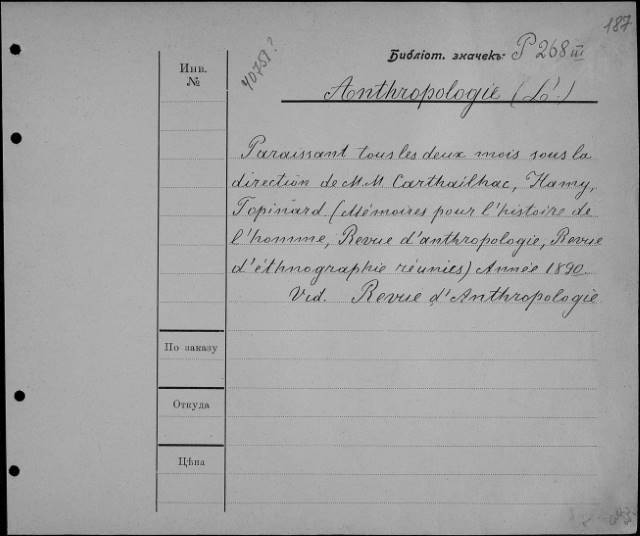 187
Библіот. значекъ: P 268 III
Инв.
№
40751?
Anthropologie (L'.)
Paraissant tous les deux mois sous la
direction de M.M. Carthailhac, Hamy,
Topinard (Mémoires pour l'histoire de
l'homme, Revue d'anthropologie, Revue
d'éthnographie réunies) Année 1890.
Vid. Revue d'Anthropologie
По заказу
Откуда
Цѣна